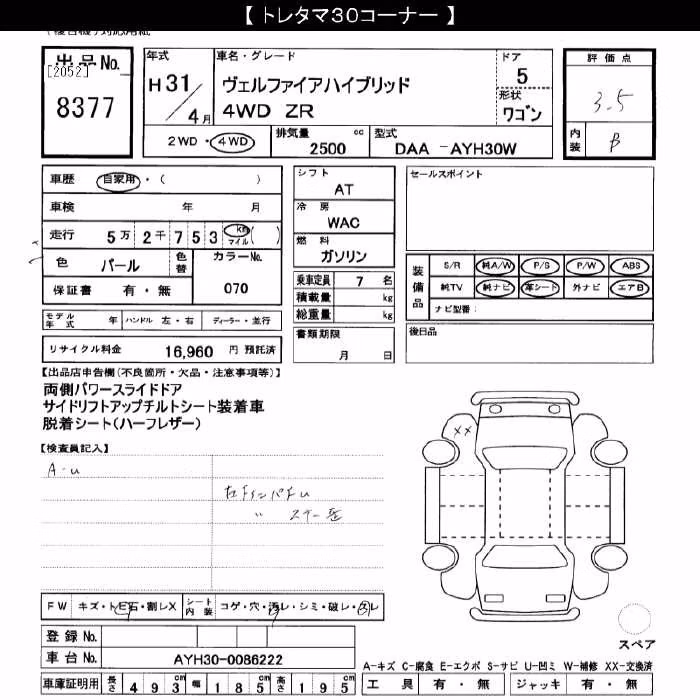 【 トレタマ30コーナー 】
出品No. [2052] 8377
年式 H31/4月
車名・グレード ヴェルファイアハイブリッド 4WD ZR
ドア 5
形状 ワゴン
評価点 3.5
内装 B
2WD・4WD 排気量 2500 cc 型式 DAA -AYH30W
車歴 自家用・( )
車検 年 月
走行 5万2千753 km マイル ( )
色 パール 色替 カラーNo. 070
保証書 有・無
モデル年式 年 ハンドル 左・右 ディーラー・並行
リサイクル料金 16,960 円 預託済
シフト AT
冷房 WAC
燃料 ガソリン
乗車定員 7 名
積載量 kg
総重量 kg
書類期限 月 日
セールスポイント
装備品 S/R 純A/W P/S P/W ABS
純TV 純ナビ 革シート 外ナビ エアB
ナビ型番:
後日品
【出品店申告欄(不良箇所・欠品・注意事項等)】
両側パワースライドドア
サイドリフトアップチルトシート装着車
脱着シート(ハーフレザー)
【検査員記入】
A-u
XX
FW キズ・トビ石・割レX シート内装 コゲ・穴・汚レ・シミ・破レ・スレ
登録No.
車台No. AYH30-0086222
車庫証明用 長さ 493cm 幅 185cm 高さ 195cm
スペア
A-キズ C-腐食 E-エクボ S-サビ U-凹ミ W-補修 XX-交換済
工具 有・無 ジャッキ 有・無